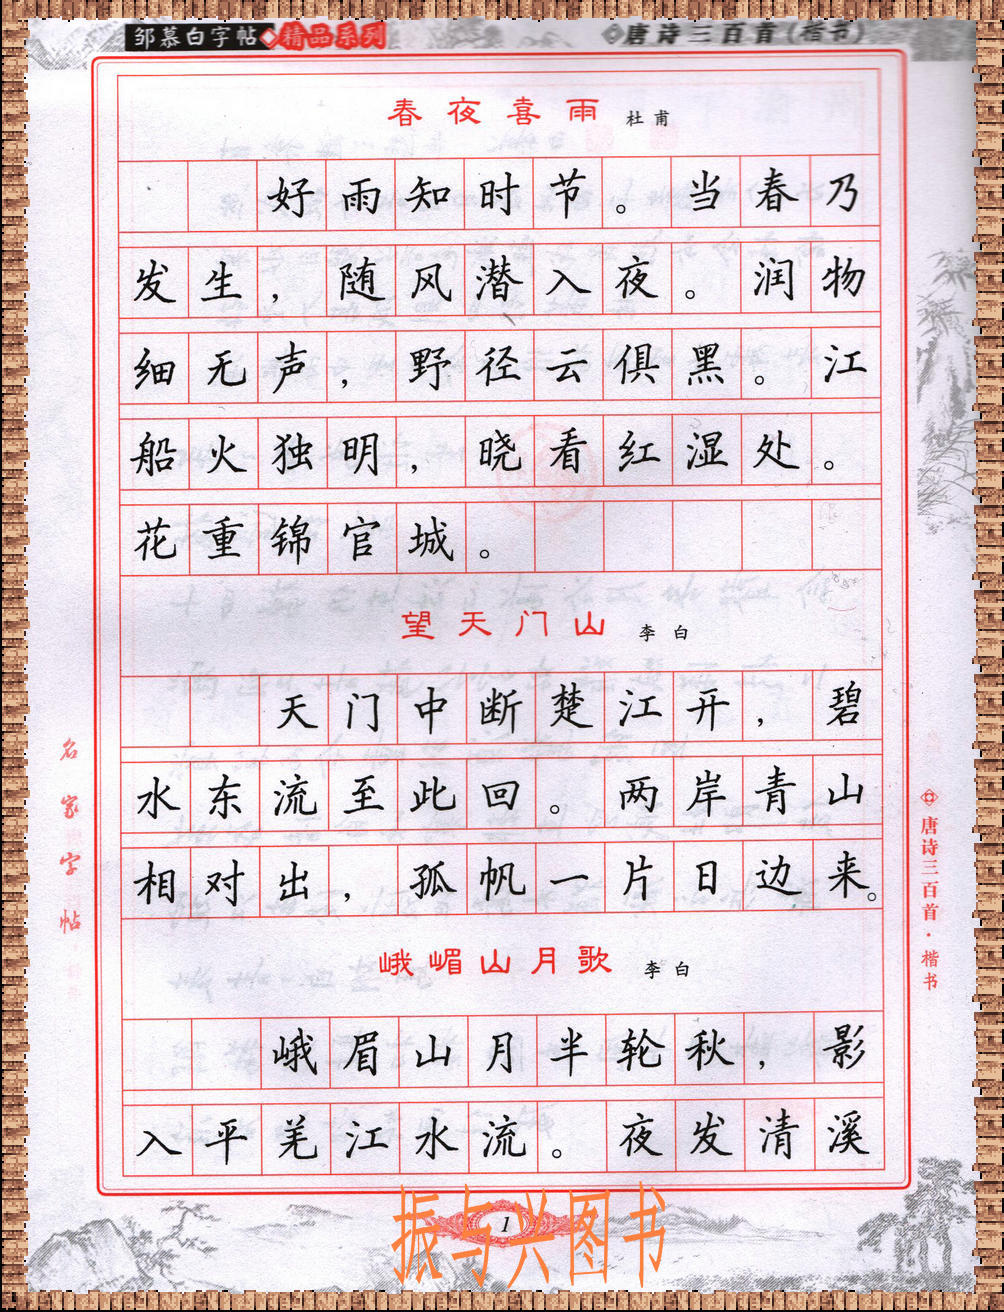 邹慕白字帖 精品系列
唐诗三百首(楷书)
春夜喜雨 杜甫
好雨知时节。当春乃
发生，随风潜入夜。润物
细无声，野径云俱黑。江
船火独明，晓看红湿处。
花重锦官城。
望天门山 李白
天门中断楚江开，碧
水东流至此回。两岸青山
相对出，孤帆一片日边来。
峨嵋山月歌 李白
峨眉山月半轮秋，影
入平羌江水流。夜发清溪
名家字帖
唐诗三百首·楷书
1
振与兴图书